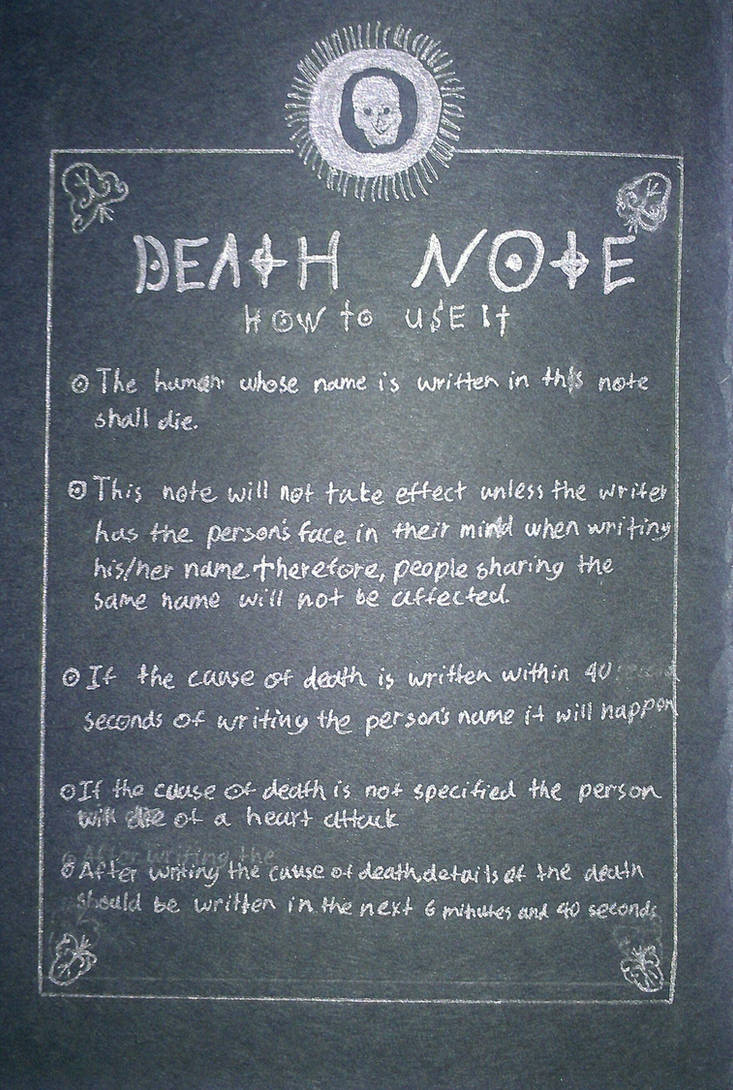 DEATH NOTE
HOW to USE It
The human whose name is written in this note
shall die.
This note will not take effect unless the writer
has the person's face in their mind when writing
his/her name therefore, people sharing the
same name will not be affected.
If the cause of death is written within 40
seconds of writing the person's name it will happen
If the cause of death is not specified the person
will die of a heart attack
After writing the
After writing the cause of death, details of the death
should be written in the next 6 minutes and 40 seconds